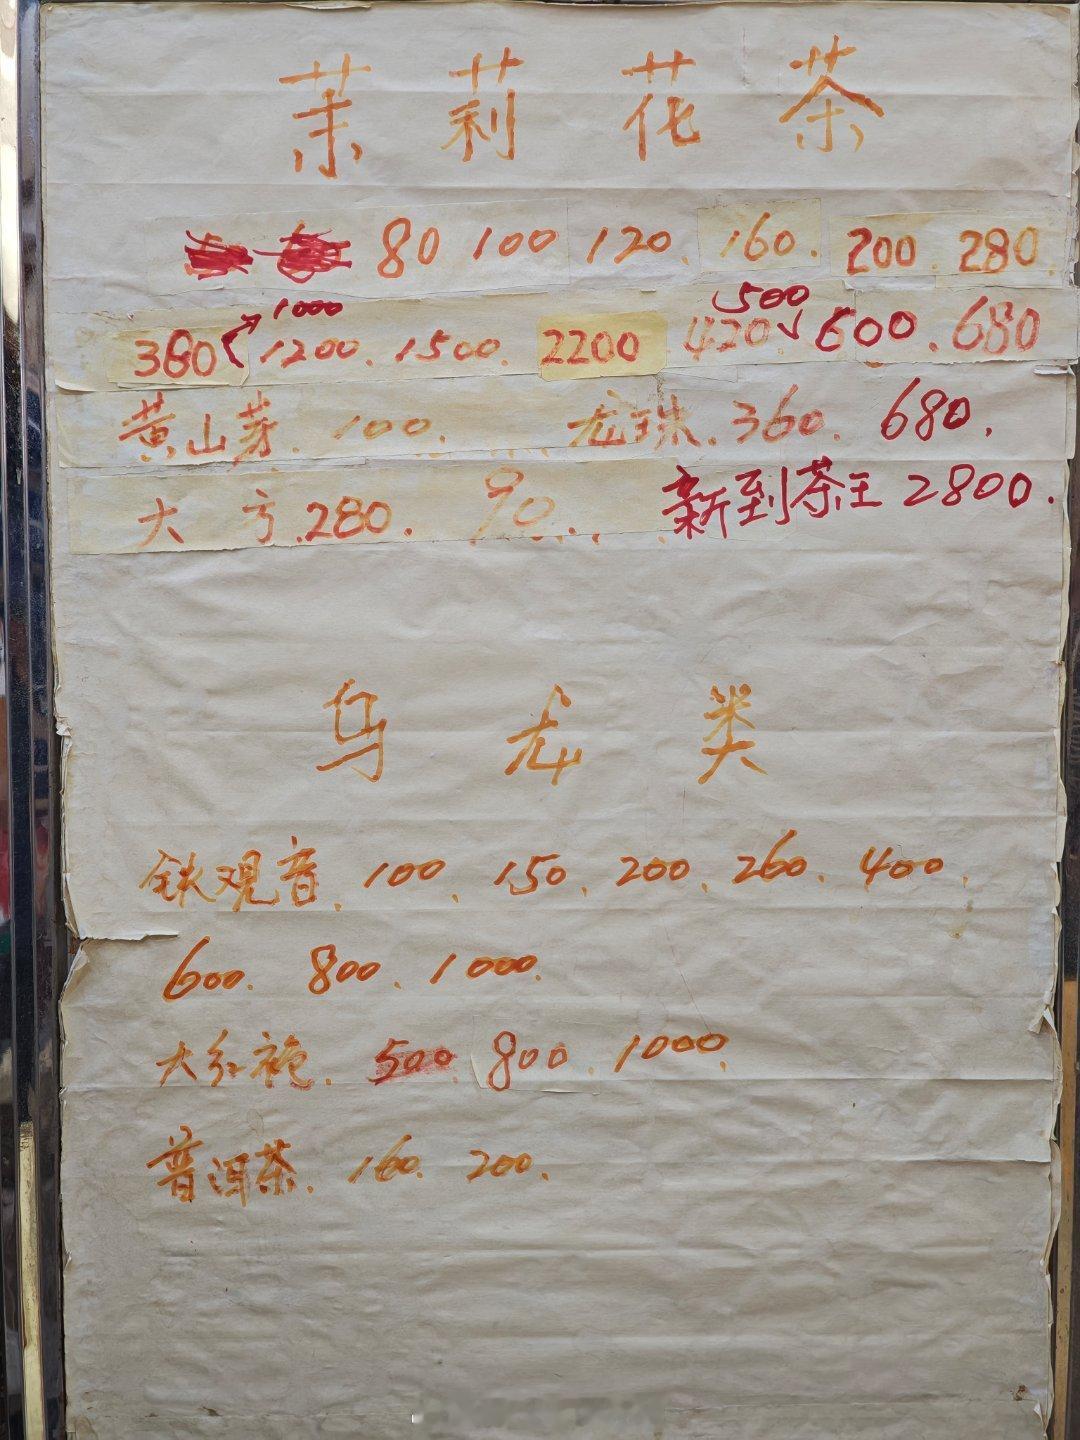 茉莉花茶
80 100 120. 160. 200. 280.
1000 500
380 1200. 1500. 2200 420 600. 680
黄山芽. 100. 龙珠. 360. 680.
大方. 280. 90. 新到茶王 2800.
乌龙类
铁观音. 100. 150. 200. 260. 400.
600. 800. 1000.
大红袍. 500. 800. 1000.
普洱茶. 160. 200.